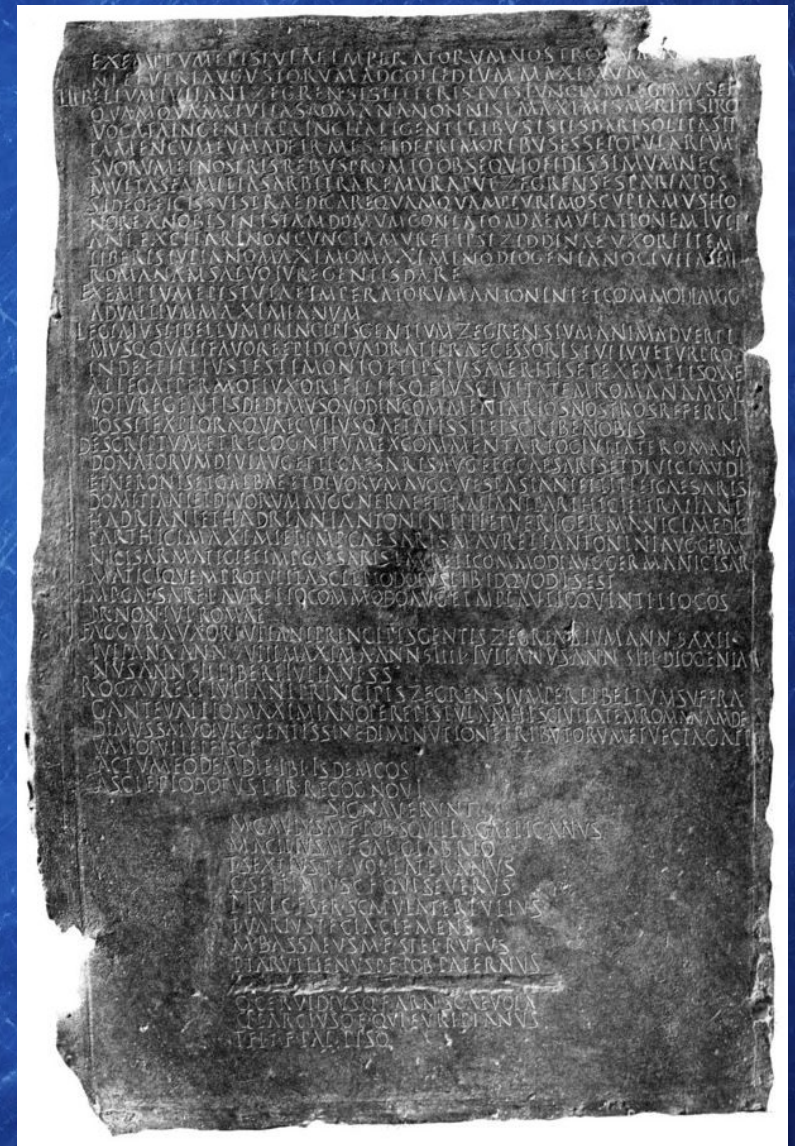 EXEMPLVM EPISTVLAE IMPERATORVM NOSTRO
NI ET VERI AVGVSTORVM AD COIIEDIVM MAXIMVM
LIBELLVM IVLIANI ZEGRENSIS LITTERIS TVIS IVNCTVM LEGIMVS ET
QVAMQVAM CIVITAS ROMANA NON NISI MAXIMIS MERITIS PRO
VOCATA INGENTIA PRINCIPALI GENTILIBVS ISTIS DARI SOLITA SIT
TAMEN CVM EVM ADFIRMES ET DE PRIMORIBVS ESSE POPVLARIVM
SVORVM ET NOSTRIS REBVS PROMTO OBSEQVIO FIDISSIMVM NEC
MVLTAS FAMILIAS ARBITRAREMVR APVT ZEGRENSES PARIA POS
S DE OFFICIS SVIS PRAEDICARE QVAMQVAM PLVRIMOS CVPIAMVS HO
NORE A NOBIS IN ISTAM DOMVM CONLATO AD AEMVLATIONEM IVLI
ANI EXCITARI NON CVNCTAMVR ET IPSI ZIDDINAE VXORI ITEM
LIBERIS IVLIANO MAXIMO MAXIMINO DIOGENIANO CIVITATEM
ROMANAM SALVO IVRE GENTIS DARE
EXEMPLVM EPISTVLAE IMPERATORVM ANTONINI ET COMMODI AVGG
AD VALLIVM MAXIMIANVM
LEGIMVS LIBELLVM PRINCIPIS GENTIVM ZEGRENSIVM ANIMADVERTI
MVSQ QVALI FAVORE EPIDI QVADRATI PRAECESSORIS TVI IVVETVR PRO
INDE ET ILLIVS TESTIMONIO ET IPSIVS MERITIS ET EXEMPLIS QVAE
ALLEGAT PERMOTI VXORI FILISQ EIVS CIVITATEM ROMANAM SAL
VO IVRE GENTIS DEDIMVS QVOD IN COMMENTARIOS NOSTROS REFERRI
POSSIT EXPLORA QVAE CVIVSQ AETATIS SIT ET SCRIBE NOBIS
DESCRIPTVM ET RECOGNITVM EX COMMENTARIO CIVITATE ROMANA
DONATORVM DIVI AVG ET TI CAESARIS AVG ET C CAESARIS ET DIVI CLAVDI
ET NERONIS ET GALBAE ET DIVORVM AVGG VESPASIANI ET TITI ET CAESARIS
DOMITIANI ET DIVORVM AVGG NERVAE ET TRAIANI PARTHICI ET TRAIANI
HADRIANI ET HADRIANI ANTONINI ET VERI GERMANICI MEDIC
PARTHICI MAXIMI ET IMP CAESARIS M AVRELI ANTONINI AVG GERM
NICI SARMATICI ET IMP CAESARIS L AVRELI COMMODI AVG GERMANICI SAR
MATICI QVEM PROTVLIT ASCLEPIODOTVS LIB ID QVOD I S EST
IMP CAESARE L AVRELIO COMMODO AVG ET M PLAVTIO QVINTILIO COS
PR NON IVL ROMAE
FAGGVRA VXOR IVLIANI PRINCIPIS GENTIS ZEGRENSIVM ANN XXII
IVLIANA ANN VIII MAXIMA ANN IIII IVLIANVS ANN III DIOGENIA
NVS ANN II LIBERI IVLIANI S S
ROG AVRELI IVLIANI PRINCIPIS ZEGRENSIVM PER LIBELLVM SVFFRA
GANTE VALLIO MAXIMIANO PER EPISTVLAM HIS CIVITATEM ROMANAM DE
DIMVS SALVO IVRE GENTIS SINE DIMINVTIONE TRIBVTORVM ET VECTIGALI
VM POPVLI ET FISCI
ACTVM EODEM DIE IBI ISDEM COS
ASCLEPIODOTVS LIB RECOGNOVI
SIGNAVERVNT
M GAVIVS M F POB SQVILLA GALLICANVS
M ACILIVS M F GAL GLABRIO
T SEXTIVS T F VOT LATERANVS
C SEPTIMIVS C F QVI SEVERVS
P IVLIVS C F SER SCAPVLA TERTVLLVS
T VARIVS T F CLA CLEMENS
M BASSAEVS M F STEL RVFVS
P TARVTTIENVS P F POB PATERNVS
Q CERVIDIVS Q F ARN SCAEVOLA
Q LARCIVS Q F QVI EVRIPIANVS
T FL T F PAL PISO